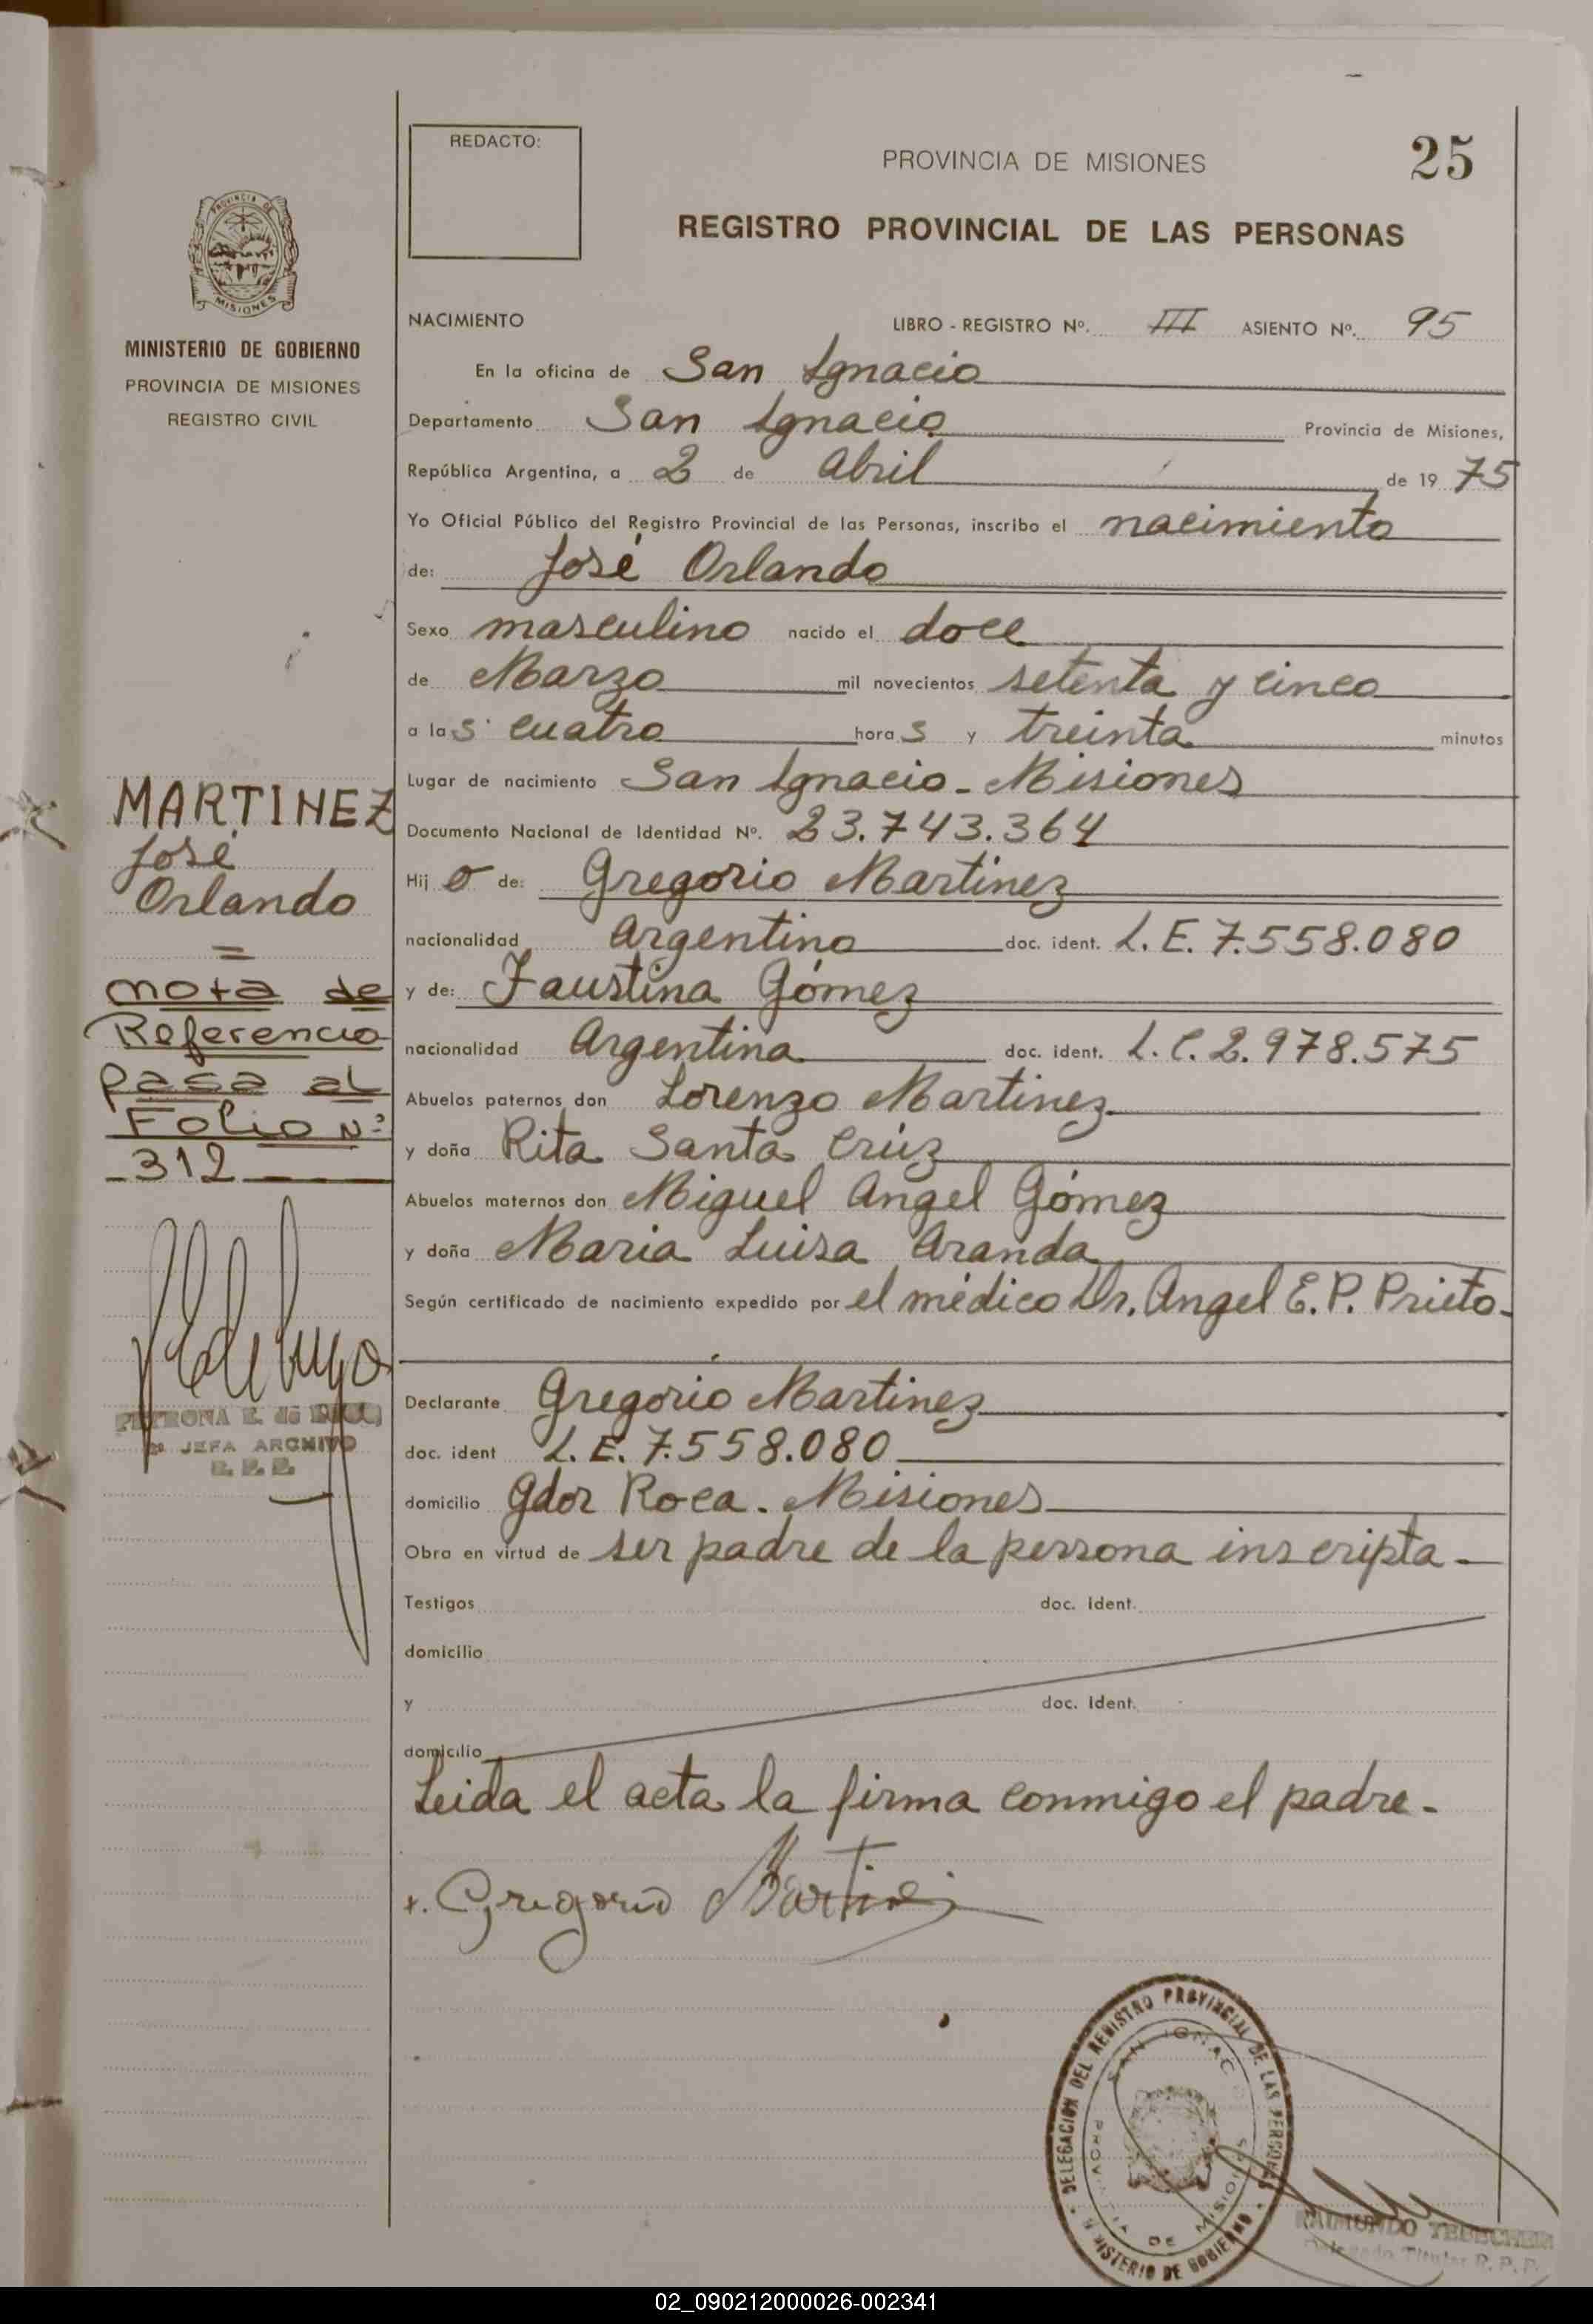 REDACTO:
PROVINCIA DE MISIONES
25
REGISTRO PROVINCIAL DE LAS PERSONAS
PROVINCIA DE
MISIONES
MINISTERIO DE GOBIERNO
PROVINCIA DE MISIONES
REGISTRO CIVIL
NACIMIENTO LIBRO - REGISTRO Nº. III ASIENTO Nº. 95
En la oficina de San Ignacio
Departamento San Ignacio Provincia de Misiones,
República Argentina, a 2 de Abril de 19 75
Yo Oficial Público del Registro Provincial de las Personas, inscribo el nacimiento
de: José Orlando
Sexo masculino nacido el doce
de Marzo mil novecientos setenta y cinco
a las cuatro horas y treinta minutos
Lugar de nacimiento San Ignacio - Misiones
Documento Nacional de Identidad Nº. 23.743.364
Hijo de: Gregorio Martinez
nacionalidad Argentino doc. ident. L.E. 7.558.080
y de: Faustina Gómez
nacionalidad Argentina doc. ident. L.C. 2.978.575
Abuelos paternos don Lorenzo Martinez
y doña Rita Santa Crúz
Abuelos maternos don Miguel Angel Gómez
y doña Maria Luisa Aranda
Según certificado de nacimiento expedido por el médico Dr. Angel E.P. Prieto.
Declarante Gregorio Martinez
doc. ident L.E. 7.558.080
domicilio Gdor Roca. Misiones
Obra en virtud de ser padre de la persona inscripta -
Testigos doc. ident.
domicilio
y doc. ident.
domicilio
Leida el acta la firma conmigo el padre.
x. Gregorio Martinez
MARTINEZ
José
Orlando
=
nota de
Referencia
pasa al
Folio Nº
312
PETRONA E. de
JEFA ARCHIVO
R. P. P.
DELEGACION DEL REGISTRO PROVINCIAL DE LAS PERSONAS
MINISTERIO DE GOBIERNO
SAN IGNACIO
PROVINCIA DE MISIONES
RAIMUNDO
Delegado Titular R. P. P.
02_090212000026-002341